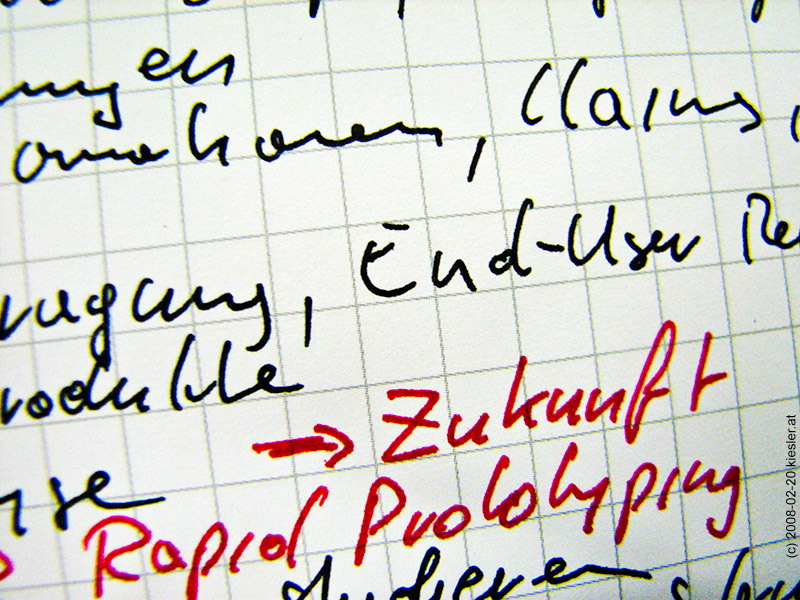 ungen
omationen, Claims,
ragung, End-User Re
rodukte
→ Zukunft
nse
Rapid Prototyping
(c) 2008-02-20 kiesler.at